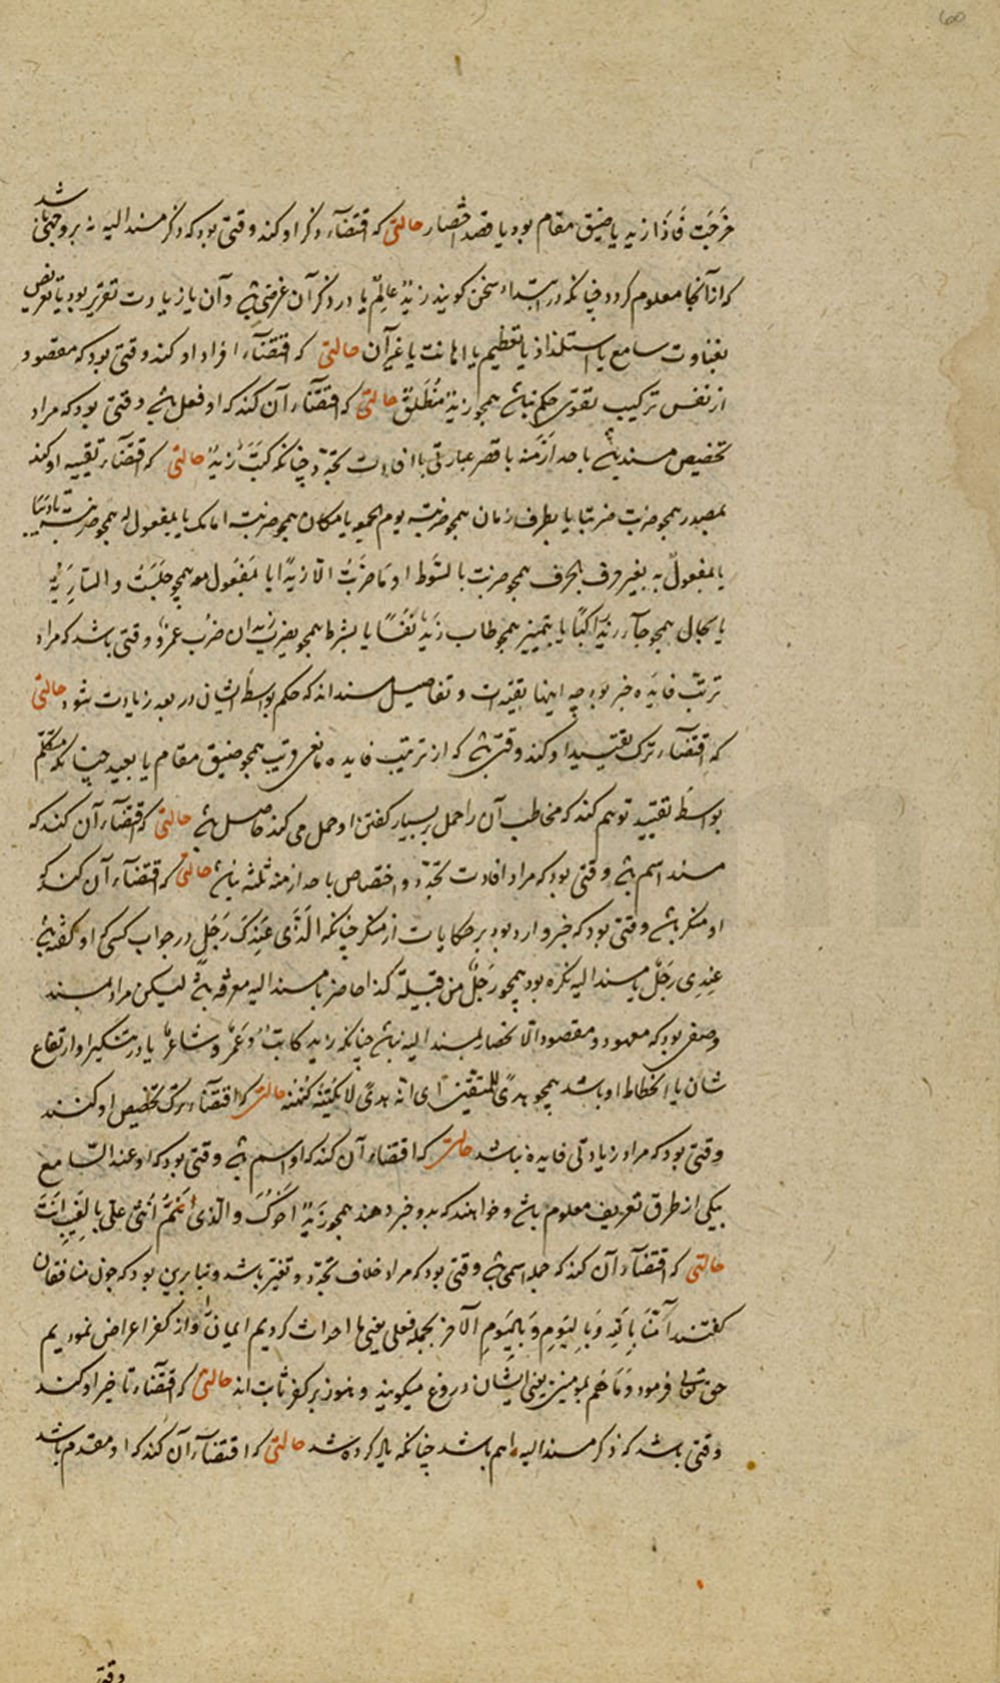 خرجت فاذا زید یا ضیق مقام بود یا قصد اختصار حالتی که اقتضاء ذکر او کند وقتی بود که ذکر مسند الیه نه بر وجهی باشد
که از آنجا معلوم گردد چنانکه در ابتداء سخن گویند زید عالم یا در ذکر آن غرضی باشد و آن یا زیادت تقریر بود یا تعریض
بغباوت سامع یا استلذاذ یا تعظیم یا اهانت یا غیر آن حالتی که اقتضاء افراد او کند وقتی بود که مقصود
از نفس ترکیب تقوی حکم نباشد همچو زید منطلق حالتی که اقتضاء آن کند که او فعل باشد وقتی بود که مراد
تخصیص مسند باشد باحد ازمنه با قصر عبارتی با افادت تجدد چنانکه کتب زید حالتی که اقتضاء تقیید او کند
بمصدر همچو ضربت ضربتا یا بظرف زمان همچو ضربت یوم الجمعه یا مکان همچو ضربت امامک یا بمفعول له همچو ضربت تادیبا
یا بمفعول به بغیر حرف یا بحرف همچو ضربت بالسوط او ما ضربت الا زیدا یا بمفعول معه همچو جلست و الساریه
یا بحال همچو جاء زید راکبا یا بتمییز همچو طاب زید نفسا یا بشرط همچو یضرب زید ان ضرب عمرو وقتی باشد که مراد
ترتب فایده خبر بود چه اینها بقیدات و تفاصیل مسند اند که حکم بواسطه ایشان در بعد زیادت شود حالتی
که اقتضاء ترک تقیید او کند وقتی باشد که از ترتیب فایده مانعی قریب همچو ضیق مقام یا بعید چنانکه متکلم
بواسطه تقیید توهم کند که مخاطب آن را حمل بر بسیار گفتن او حمل می کند حاصل باشد حالتی که اقتضاء آن کند که
مسند اسم باشد وقتی بود که مراد افادت تجدد و اختصاص باحد ازمنه ثلثه نباشد حالتی که اقتضاء آن کند که
او منکر باشد وقتی بود که خبر وارد بود بر حکایات از منکر چنانکه الذی عندک رجل در جواب کسی که او گفته باشد
عندی رجل یا مسند الیه نکره بود همچو رجل من قبیلة کذا حاضر یا مسند الیه معرفه باشد لیکن مراد بمسند
وصفی بود که معهود و مقصود الانحصار بمسند الیه نباشد چنانکه زید کاتب و عمرو شاعر یا در تنکیر او ارتفاع
شان یا انحطاط او باشد همچو هدی للمتقین ای انه هدی لا یکتنه کنهه حالتی که اقتضاء ترک تخصیص او کند
وقتی بود که مراد زیادتی فایده نباشد حالتی که اقتضاء آن کند که او اسم باشد وقتی بود که او عند السامع
بیکی از طرق تعریف معلوم باشد و خواهند که بدو خبر دهند همچو زید اخوک و الذی انعم اثنی علی بالغیب انت
حالتی که اقتضاء آن کند که جمله اسمی باشد وقتی بود که مراد خلاف تجدد و تغیر باشد و بنابرین بود که چون منافقان
گفتند آمنا بالله و بالیوم و بالیوم الآخر بجمله فعلی یعنی ما احداث کردیم ایمان را و از کفر اعراض نمودیم
حق تعالی فرمود و ما هم بمؤمنین یعنی ایشان دروغ میگویند و هنوز بر کفر ثابت اند حالتی که اقتضاء تاخیر او کند
وقتی باشد که ذکر مسند الیه اهم باشد چنانکه یاد کرده شد حالتی که اقتضاء آن کند که او مقدم باشد
وقتی